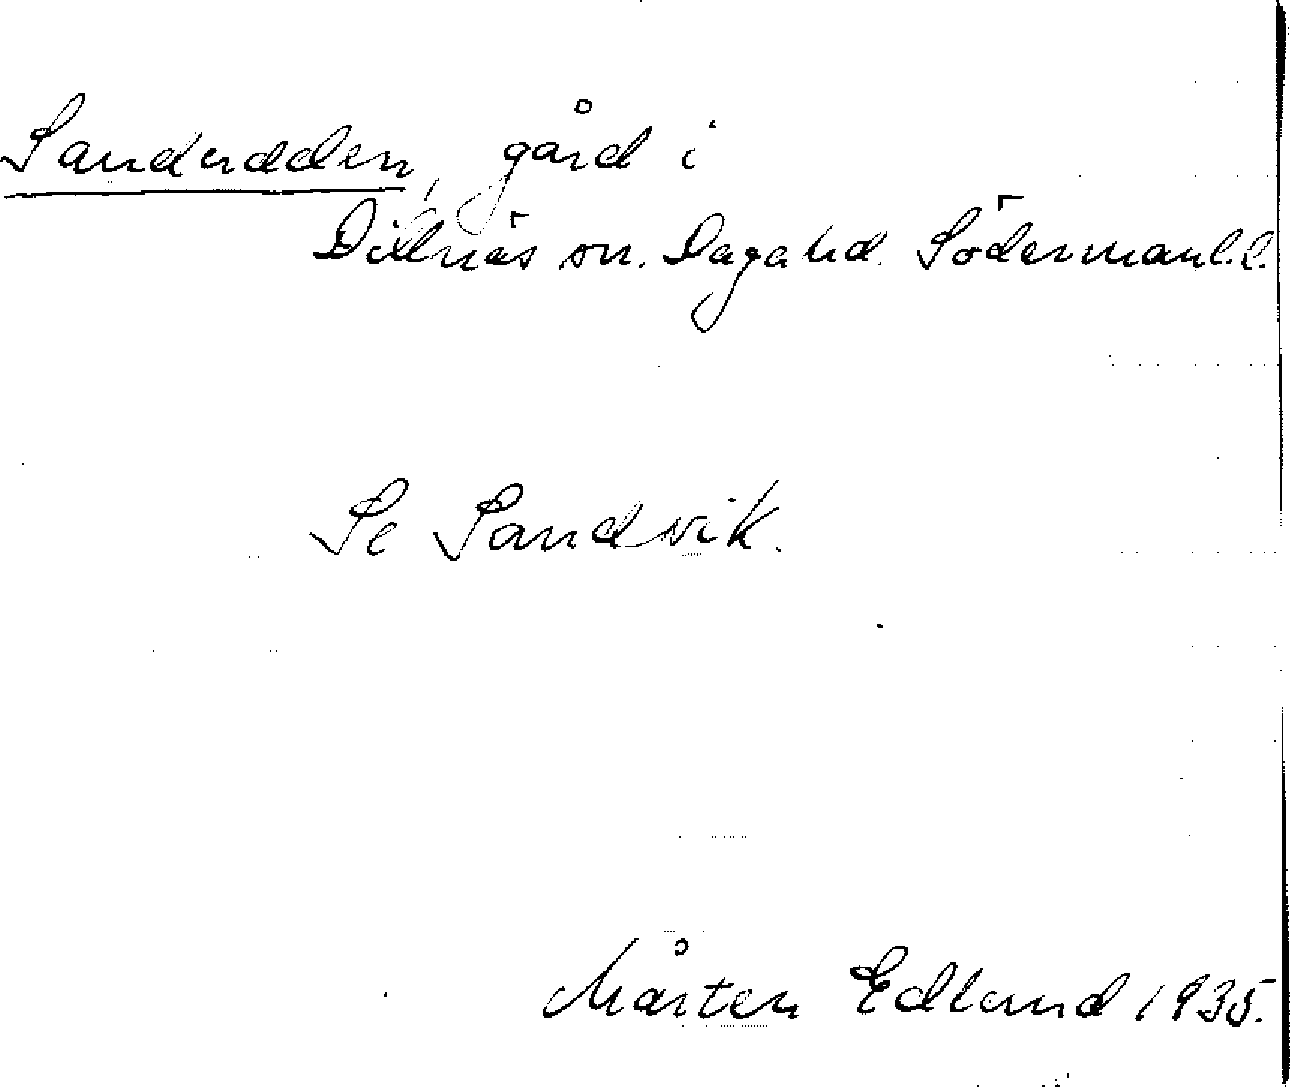 Sandudden, gård i
Dillnäs sn. Daga hd. Södermanl. l.
Se Sandvik.
Mårten Edlund 1935.